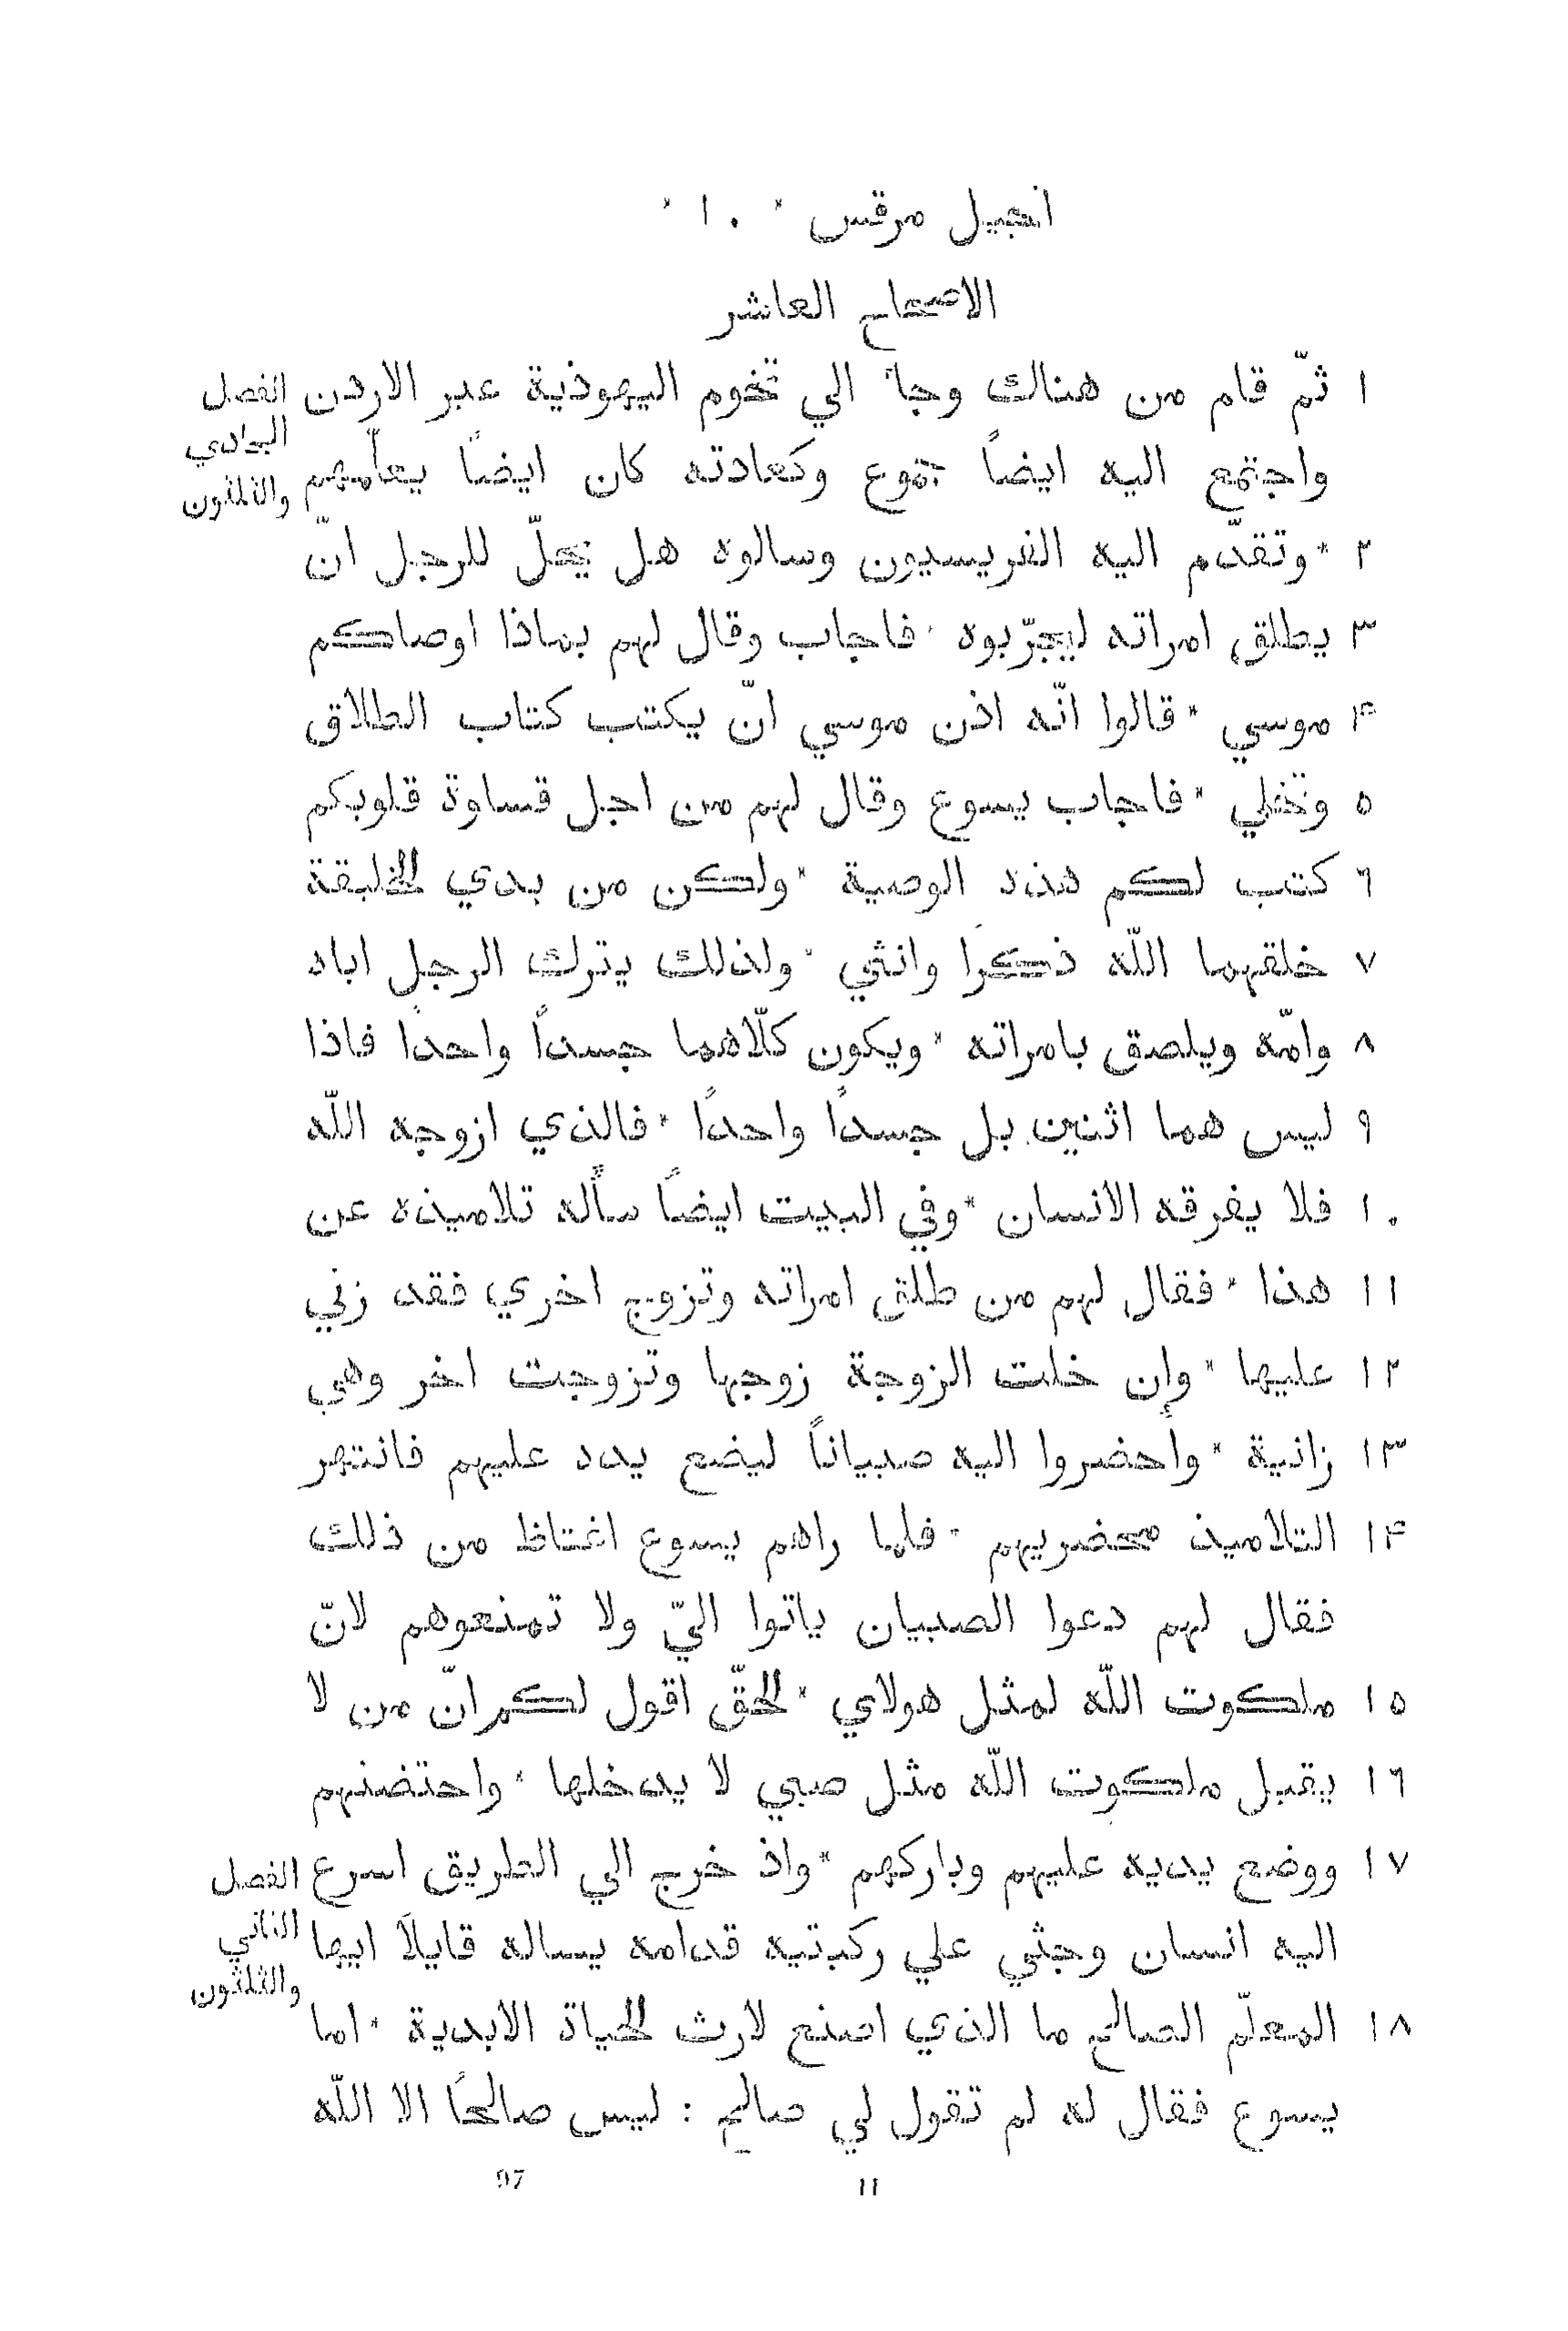 انجيل مرقس * ١٠ *
الاصحاح العاشر
١ ثمّ قام من هناك وجاء الي تخوم اليهوذية عبر الاردن
الفصل
الحادي
والثلثون
واجتمع اليه ايضاً جموع وكعادته كان ايضاً يعلّمهم
٢ * وتقدّم اليه الفريسيون وسالوه هل يحلّ للرجل انّ
٣ يطلق امراته ليجرّبوه * فاجاب وقال لهم بماذا اوصاكم
۴ موسي * قالوا انّه اذن موسي انّ يكتب كتاب الطلاق
٥ وتخلي * فاجاب يسوع وقال لهم من اجل قساوة قلوبكم
٦ كتب لكم هذه الوصية * ولكن من بدي الخليقة
٧ خلقهما اللّه ذكرًا وانثي * ولذلك يترك الرجل اباه
٨ وامّه ويلصق بامراته * ويكون كلّاهما جسداً واحدًا فاذا
٩ ليس هما اثنين بل جسدًا واحدًا * فالذي ازوجه اللّه
١٠ فلا يفرقه الانسان * وفي البيت ايضاً سأله تلاميذه عن
١١ هذا * فقال لهم من طلق امراته وتزوج اخري فقد زني
١٢ عليها * وإن خلت الزوجة زوجها وتزوجت اخر وهي
١٣ زانية * وأحضروا اليه صبياناً ليضع يده عليهم فانتهر
١۴ التلاميذ محضريهم * فلما راهم يسوع اغتاظ من ذلك
فقال لهم دعوا الصبيان ياتوا اليّ ولا تمنعوهم لانّ
١٥ ملكوت اللّه لمثل هولاي * الحقّ اقول لكم انّ من لا
١٦ يقبل ملكوت اللّه مثل صبي لا يدخلها * واحتضنهم
١٧ ووضع يديه عليهم وباركهم * واذ خرج الي الطريق اسرع
الفصل
الثاني
والثلثون
اليه انسان وجثي علي ركبتيه قدامه يساله قايلاً ايها
١٨ المعلّم الصالح ما الذي اصنع لارث الحياة الابدية * اما
يسوع فقال له لم تقول لي صالح : ليس صالحًا الا اللّه
11
97